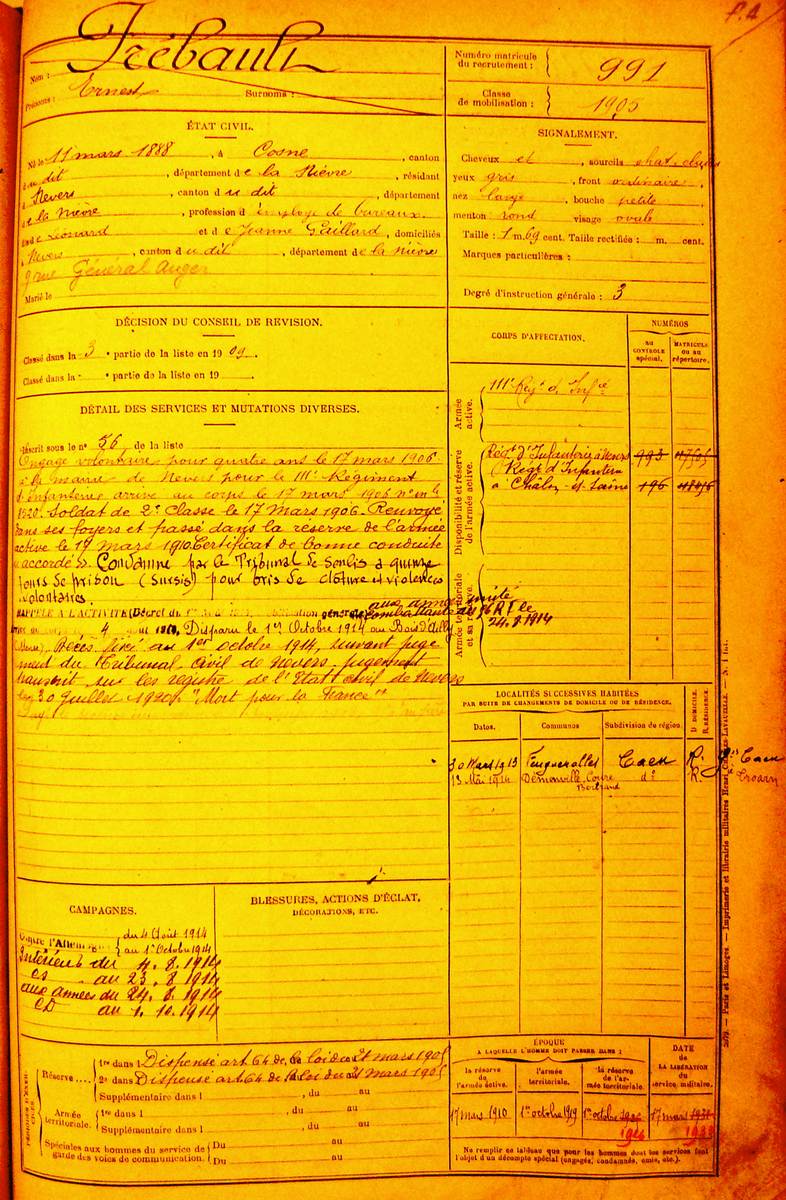 P.4
Nom : Trébault
Prénoms : Ernest Surnoms :
Numéro matricule du recrutement : 991
Classe de mobilisation : 1905
ÉTAT CIVIL.
Né le 11 mars 1888, à Cosne, canton
du dit, département de la Nièvre, résidant
à Nevers, canton du dit, département
de la Nièvre, profession d'employé de bureaux
fils de Léonard et de Jeanne Gaillard, domiciliés
à Nevers, canton du dit, département de la Nièvre
9 rue Général Auger
Marié le
SIGNALEMENT.
Cheveux et, sourcils chat. clairs
yeux gris, front ordinaire,
nez large, bouche petite,
menton rond visage ovale
Taille : 1 m. 69 cent. Taille rectifiée : m. cent.
Marques particulières :
Degré d'instruction générale : 3
DÉCISION DU CONSEIL DE REVISION.
Classé dans la 3e partie de la liste en 1909.
Classé dans la e partie de la liste en 19
DÉTAIL DES SERVICES ET MUTATIONS DIVERSES.
Inscrit sous le n° 56 de la liste
Engagé volontaire pour quatre ans le 17 mars 1906
à la mairie de Nevers pour le 111e Régiment
d'infanterie arrivé au corps le 17 mars 1906 n° mle
1920. Soldat de 2e Classe le 17 Mars 1906. Renvoyé
dans ses foyers et passé dans la réserve de l'armée
active le 17 mars 1910. Certificat de bonne conduite
accordé. Condamné par le Tribunal de Senlis à quinze
jours de prison (Sursis) pour bris de clôture et violences
volontaires.
RAPPELÉ A L'ACTIVITÉ (Décret du 1er générale aux armées
4 août Disparu le 1er Octobre 1914 au Bois d'Ailly
(Meuse). Décès fixé au 1er octobre 1914, suivant juge
ment du Tribunal Civil de Nevers. Jugement
transcrit sur les registre de l'Etat civil de Nevers
le 30 Juillet 1920. "Mort pour la France"
CORPS D'AFFECTATION.
NUMÉROS
AU CONTRÔLE spécial.
MATRICULE OU AU répertoire.
Armée active.
111e Regt d'Infie
Disponibilité et réserve de l'armée active.
Régt d'Infanterie à Nevers 993
Régt d'Infanterie
à Châlon-s-Saône 196
Armée territoriale et sa réserve.
24.8.1914
LOCALITÉS SUCCESSIVES HABITÉES
PAR SUITE DE CHANGEMENTS DE DOMICILE OU DE RÉSIDENCE.
Dates. Communes Subdivision de région. D. DOMICILE. R. RÉSIDENCE.
30 Mars 1913 Feuguerolles Caen R. Caen
13 Mai 1914 Démouville, d° R. Troarn
CAMPAGNES.
Contre l'Allemagne du 4 Août 1914
au 1er Octobre 1914
Intérieur du 4. 8. 1914
CS au 23. 8 1914
aux armées du 24. 8. 1914
CD au 1. 10. 1914
BLESSURES, ACTIONS D'ÉCLAT,
DÉCORATIONS, ETC.
Réserve
1re dans l Dispensé art. 64 de la loi du 21 mars 1905
2e dans l Dispensé art. 64 de la loi du 21 mars 1905
Supplémentaire dans l , du au
Armée territoriale.
1re dans l , du au
Supplémentaire dans l , du au
Spéciales aux hommes du service de garde des voies de communication.
Du au
Du au
ÉPOQUE
A LAQUELLE L'HOMME DOIT PASSER DANS :
la réserve de l'armée active. l'armée territoriale. la réserve de l'armée territoriale. DATE DE LA LIBÉRATION du service militaire.
17 mars 1910 1er octobre 1919 1er octobre 1926 17 mars 1931
1926 1933
Ne remplir ce tableau que pour les hommes dont les services font
l'objet d'un décompte spécial (engagés, condamnés, omis, etc.).
Paris et Limoges. — Imprimerie et librairie militaires Henri CHARLES-LAVAUZELLE.